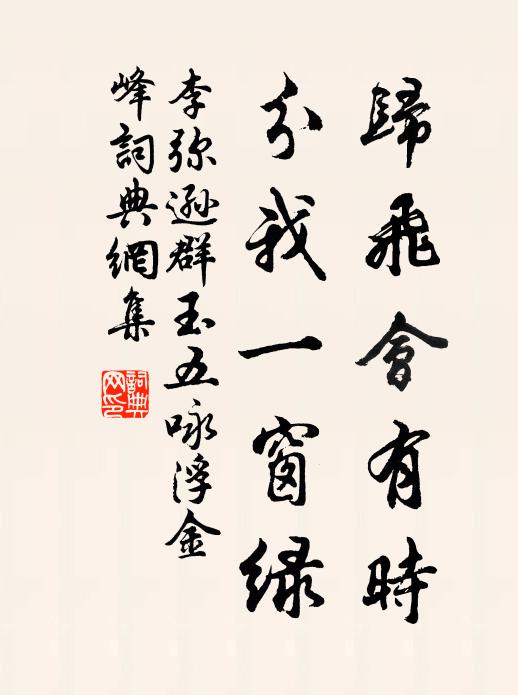 歸飛會有時
分我一窗綠
李弥遜群玉五咏浮金
峰詞典網集
詞典网印